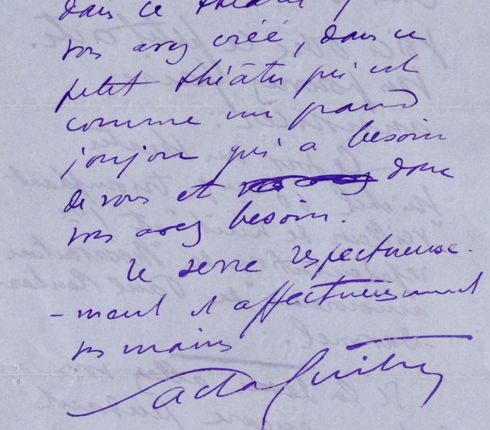 dans ce théâtre
vous avez créé, dans ce
petit théâtre qui est
comme un grand
joujou qui a besoin
de vous et dont
vous avez besoin.
Je serre respectueuse-
-ment et affectueusement
vos mains
Sacha Guitry